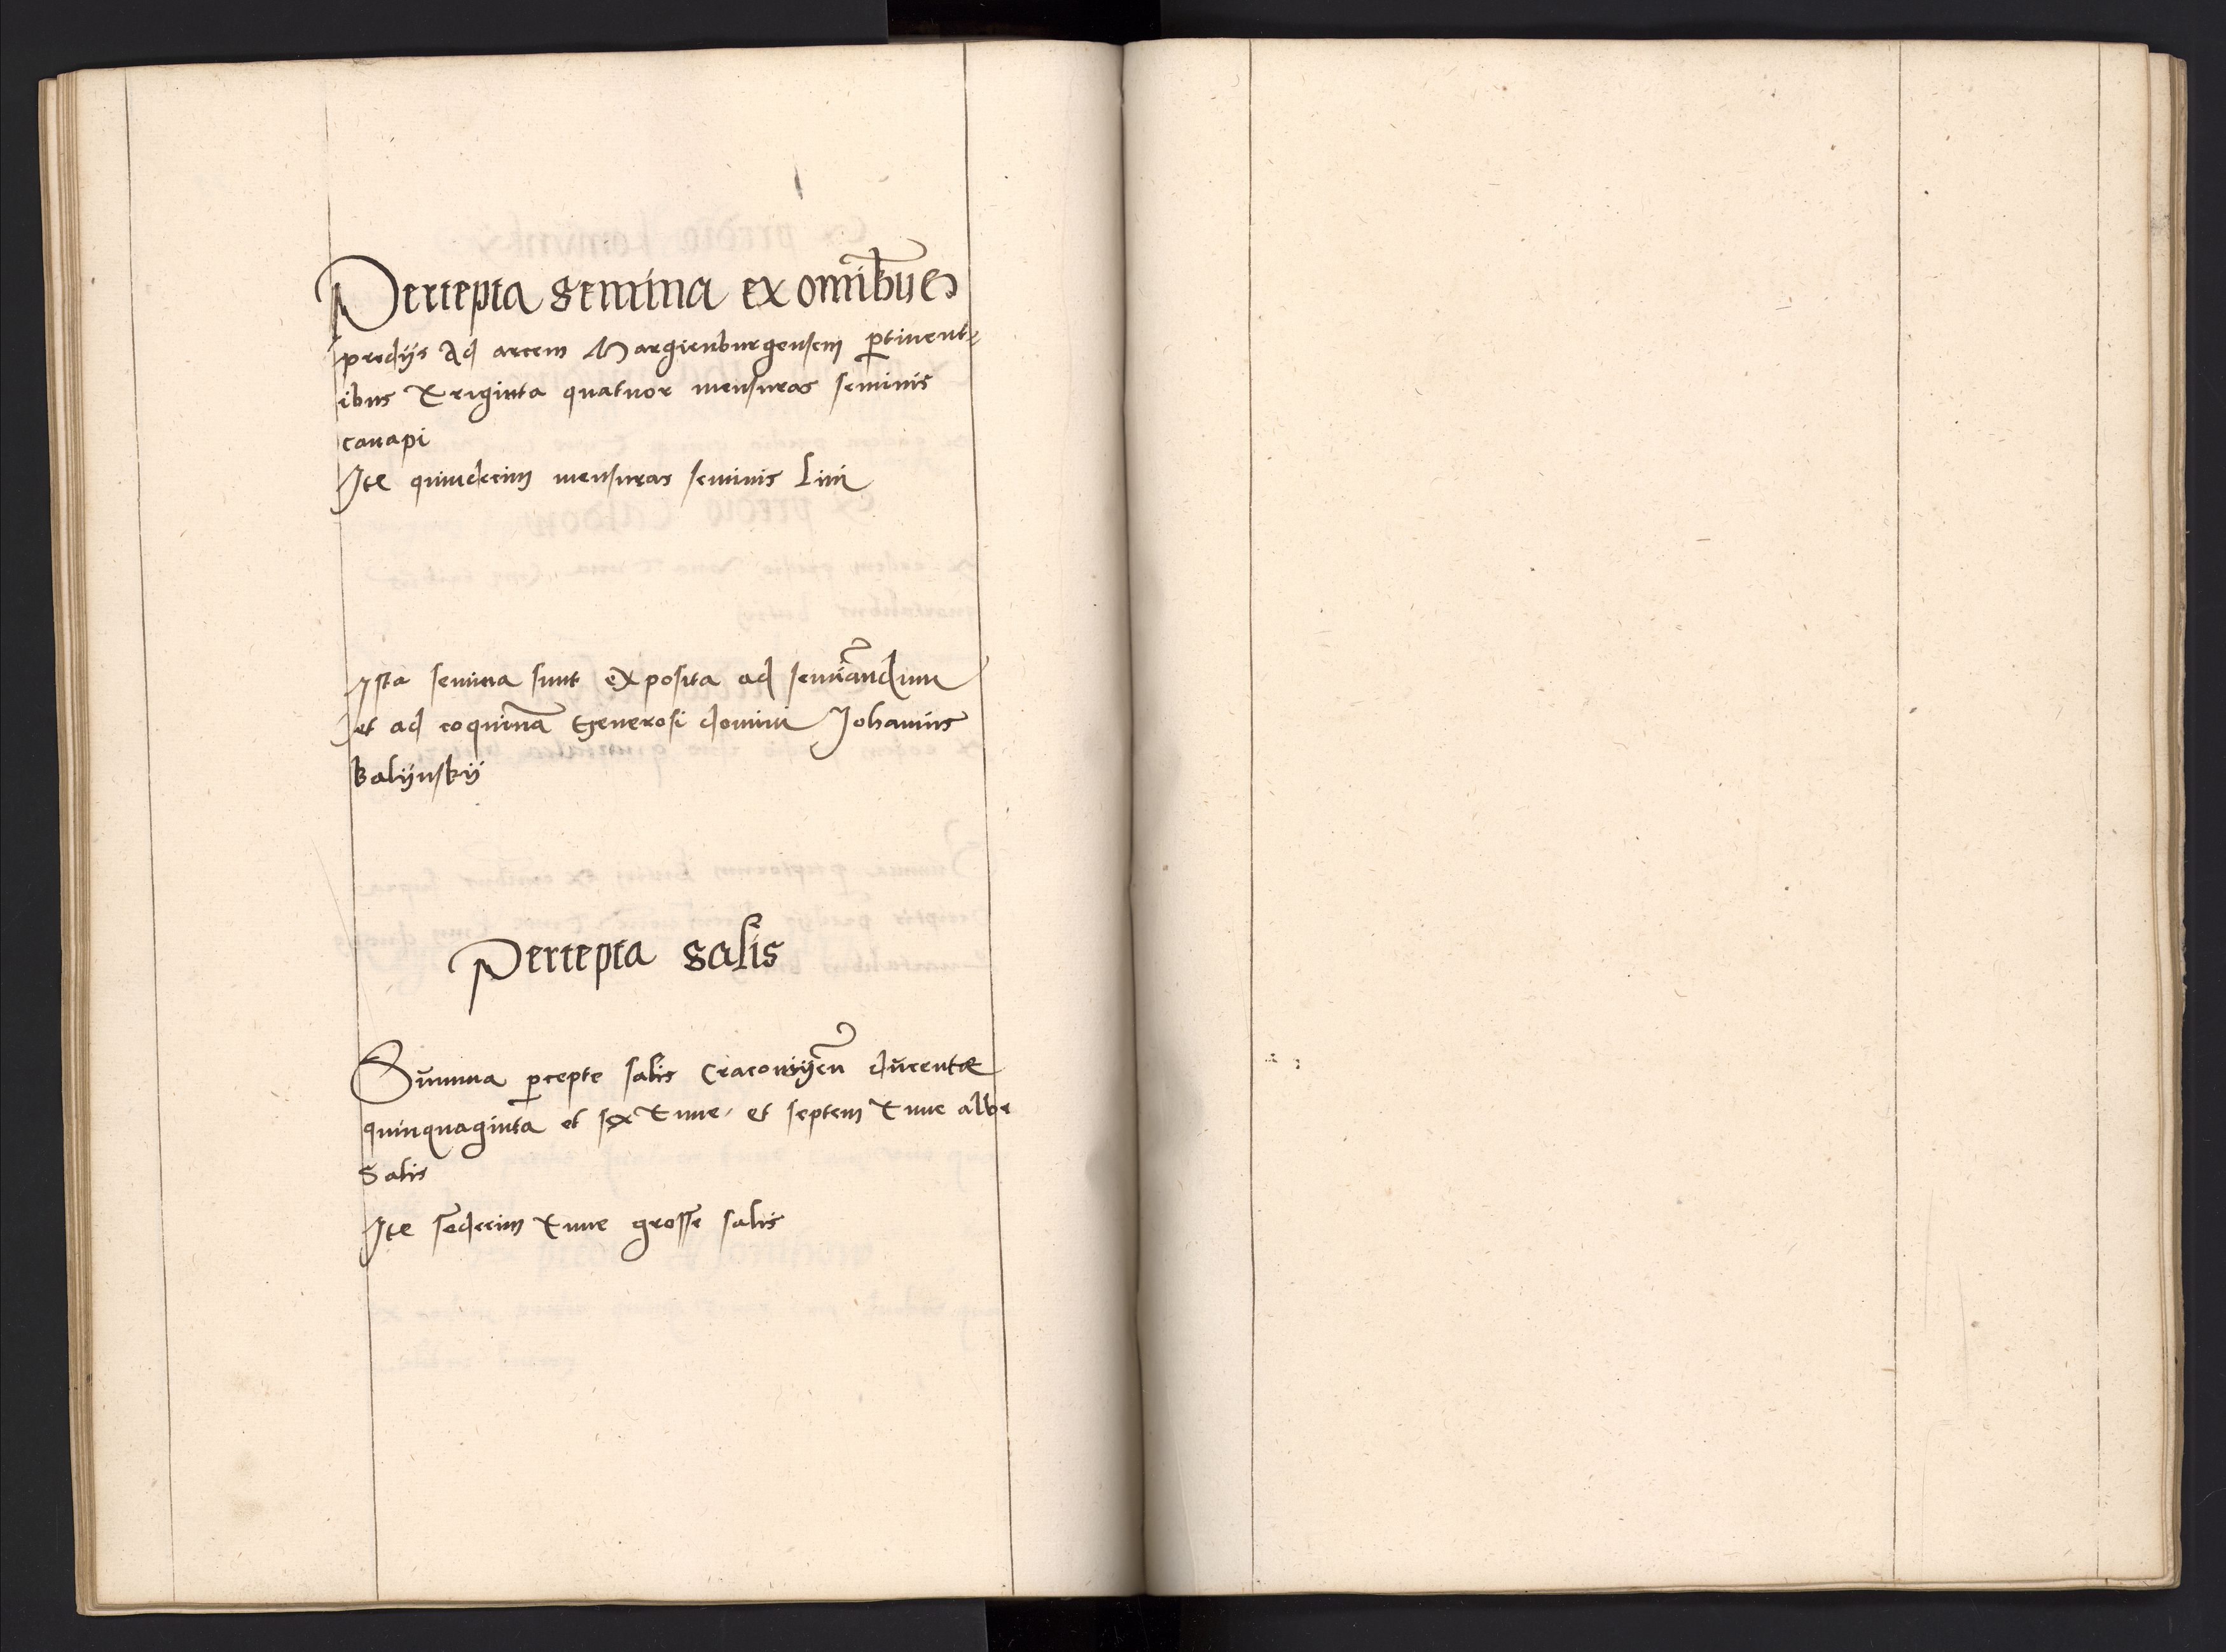 Percepta semina ex omnibus
predijs Ad arcem Margienburgensem ptinent⸗
ibus Triginta quatuor mensuras seminis
canapi
Ite quindecim mensuras seminis Lini
Ista semina sunt exposita ad seminandum
et ad coquinā Generosi domini Johannis
Balijnskij
Percepta salis
Summa pcepte salis Cracoviien ducente
quinquaginta et sex Tune et septem Tune albe
Salis
Ite sedecim Tune grosse salis